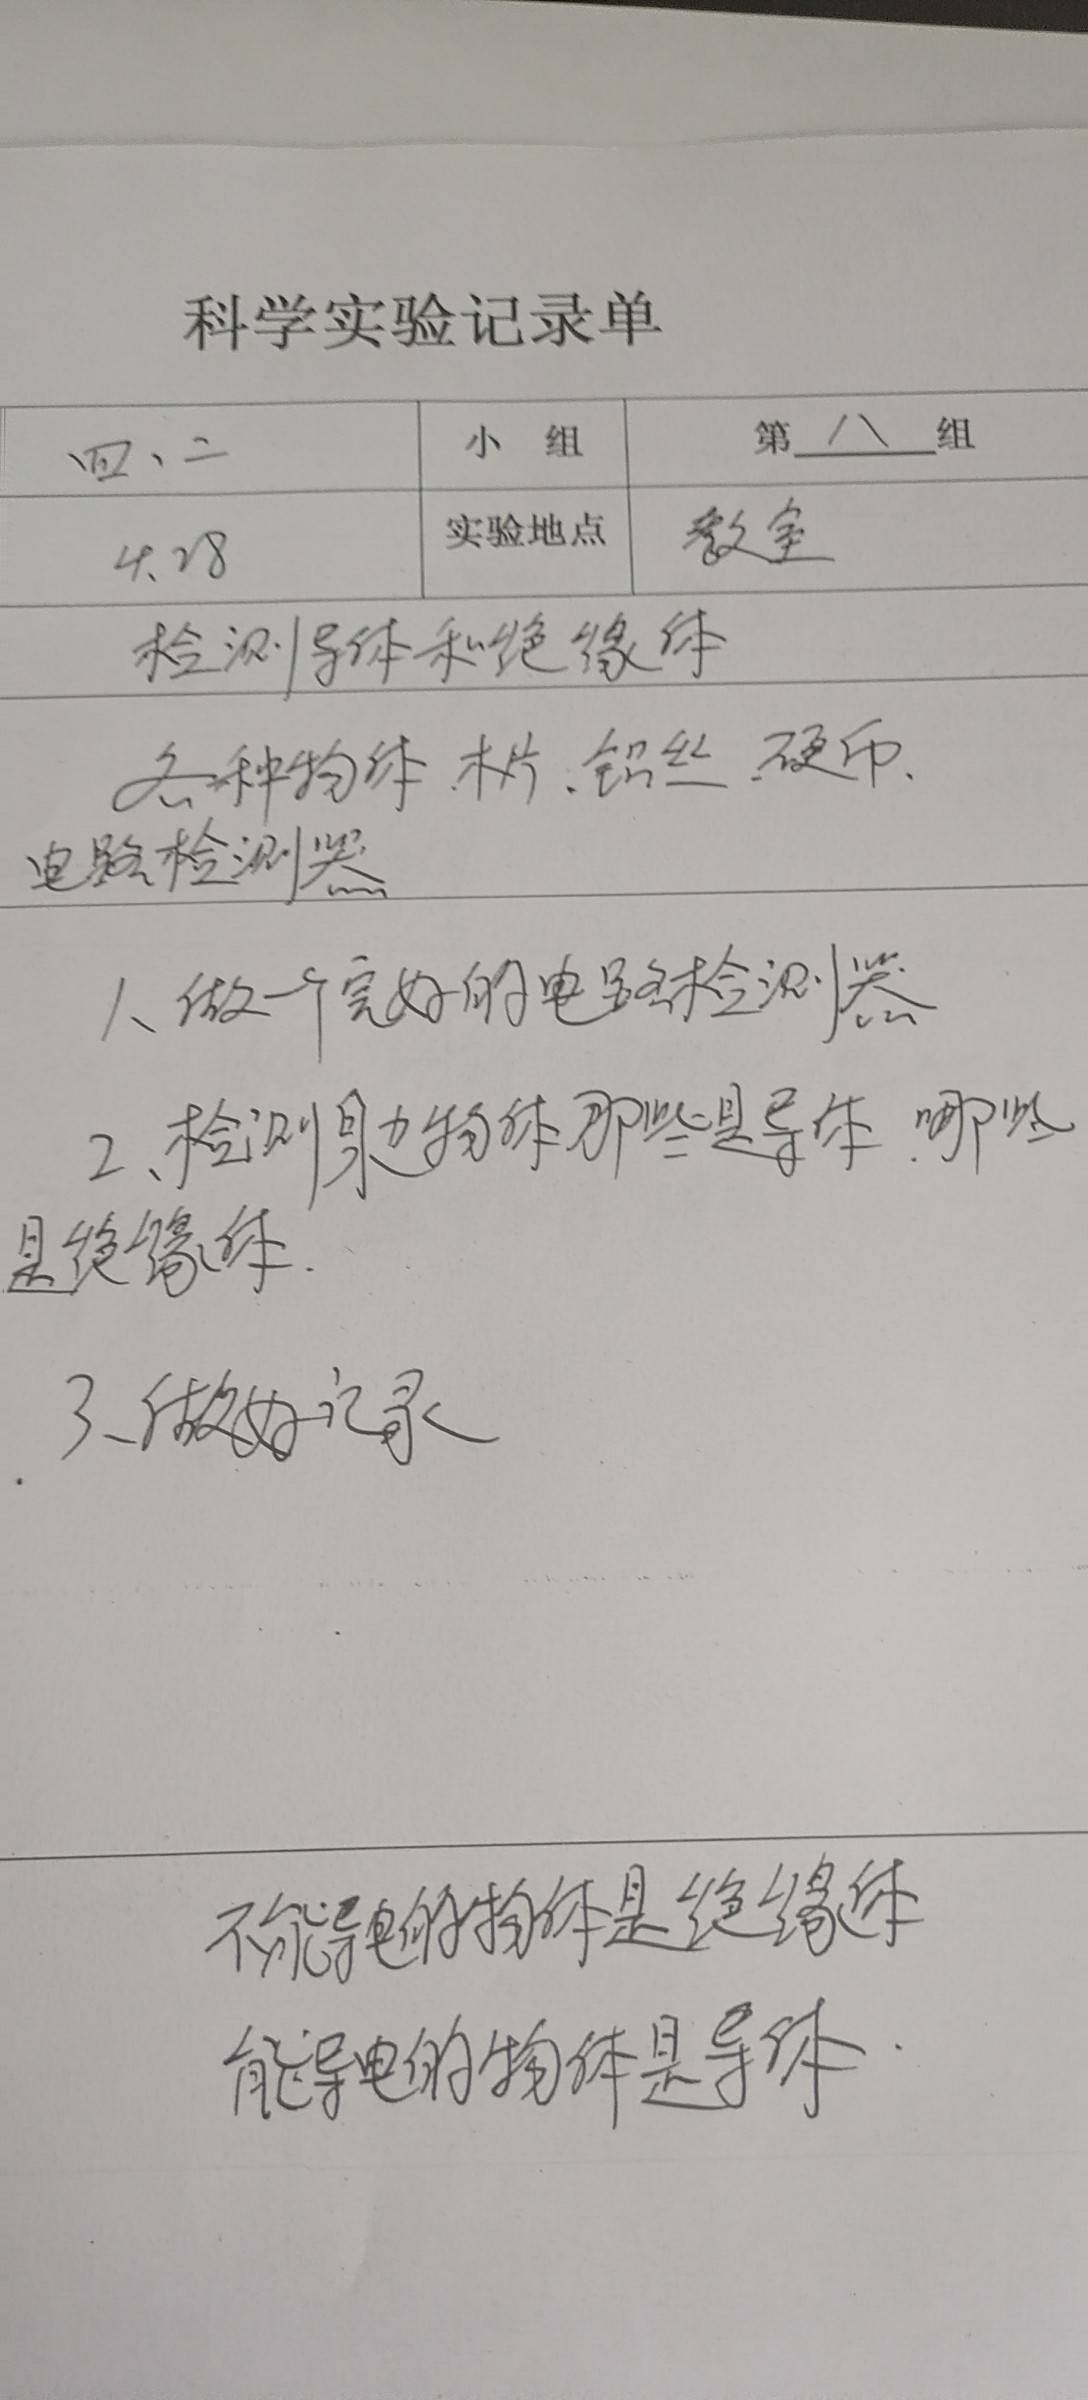 科学实验记录单
四、二 小组 第八组
4.28 实验地点 教室
检测导体和绝缘体
各种物体.木片.铝丝.硬币.
电路检测器
1、做一个完好的电路检测器
2、检测身边物体那些是导体.哪些
是绝缘体.
3、做好记录
不能导电的物体是绝缘体
能导电的物体是导体.